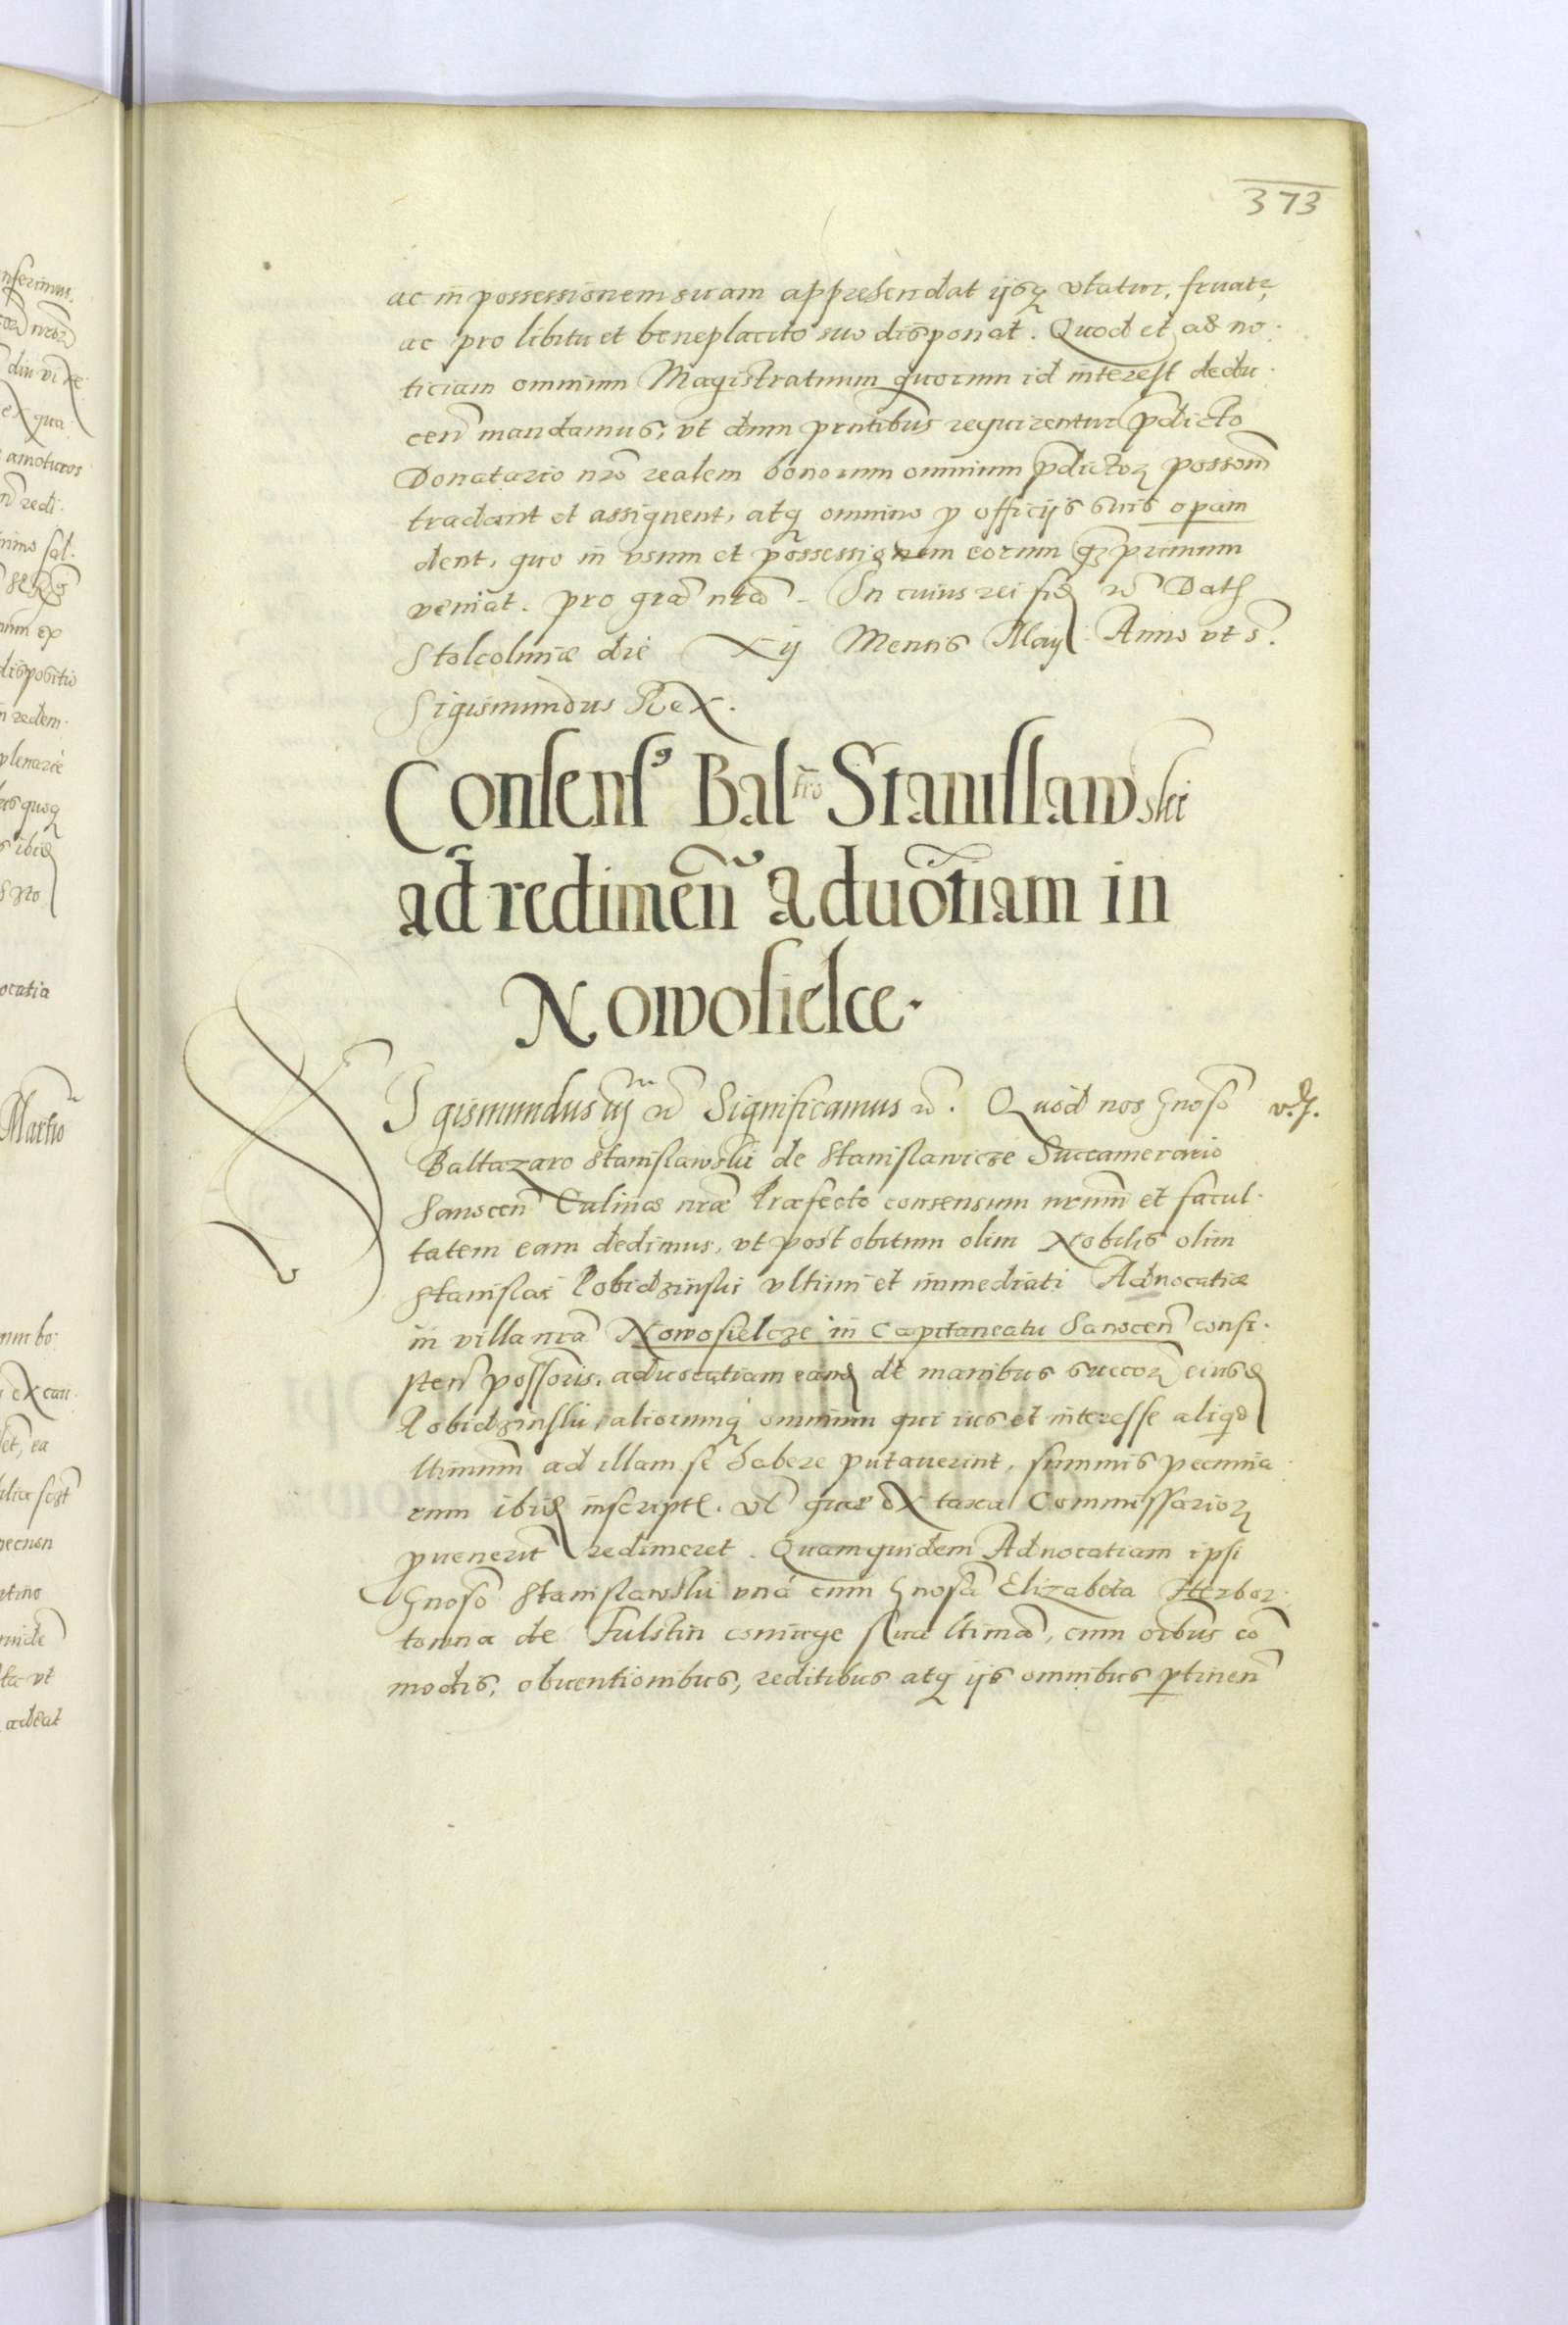 373
ac in possessionem suam apprehendat ijsq₃ vtatur, fruatr,
ac pro libitu et beneplacito suo disponat. Quod et ad no-
ticiam omnium Magistratuum quorum id interest dedu-
cen̄ mandamus, vt dum pr̄ntibus requirentur p̄dicto
Donatario nr̄o realem bonorum omnium p̄dictoꝝ possom̄
tradant et assignent, atq₃ omnino ꝓ officijs suis opam
dent, quo in vsum et possessionem eorum q₃primum
veniat. pro grā nrā. In cuius rei fid̄ &c̄ Dat
Stolcolmiæ die Xij Mensis Maij Anno vt s.
Sigismundus Rex.
Consensꝰ Balt̄ro Stanislawski
ad redimen̄ aduōtiam in
Nowosielce.
Sigismundus iij &c̄ Significamus &c̄. Quod nos Gnoso
Baltazaro Stanislawski de Stanislawicze Succamerario
Sanocen̄ Culinæ nr̄æ Præfecto consensum nr̄um et facul-
tatem eam dedimus, vt post obitum olim Nobilis olim
Stanislai Robidzinski vltimi et immediati Aduocatiæ
in villa nrā Nowosielcze in Capitaneatu Sanocen̄ consi-
sten̄ possōris, aduocatiam eand̄ de manibus succoꝝ eiusd̄
Robidzinskii, aliorumq₃ omnium qui ius et interesse aliqd̄
ltimum̄ ad illam se habere putauerint, summis pecunia-
rum ibid̄ inscript. vl̄ quæ ex taxa Commissarioꝝ
ꝓuenerit redimeret. Quam quidem Aduocatiam ipsi
Gnoso Stanislawski vná cum Gnosa Elizabeta Herbor-
towna de Fulstin coniuge sua ltima, cum oībus cō-
modis, obuentionibus, reditibus atq₃ ijs omnibus ꝑtinen̄